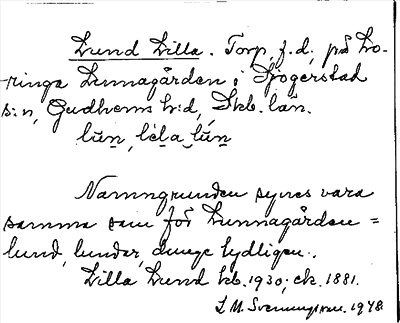 Lund Lilla. Torp, f.d., på Lo-
ringa Lunnagården i Segerstad
s:n, Gudhems h:d, Skb. län.
lŭn, lila lŭn
Namngrunden synes vara
samma som för Lunnagården =
lund, lundar, dunge tydligen.
Lilla Lund kb. 1930; ek. 1881.
L. M. Svenungsson. 1948.